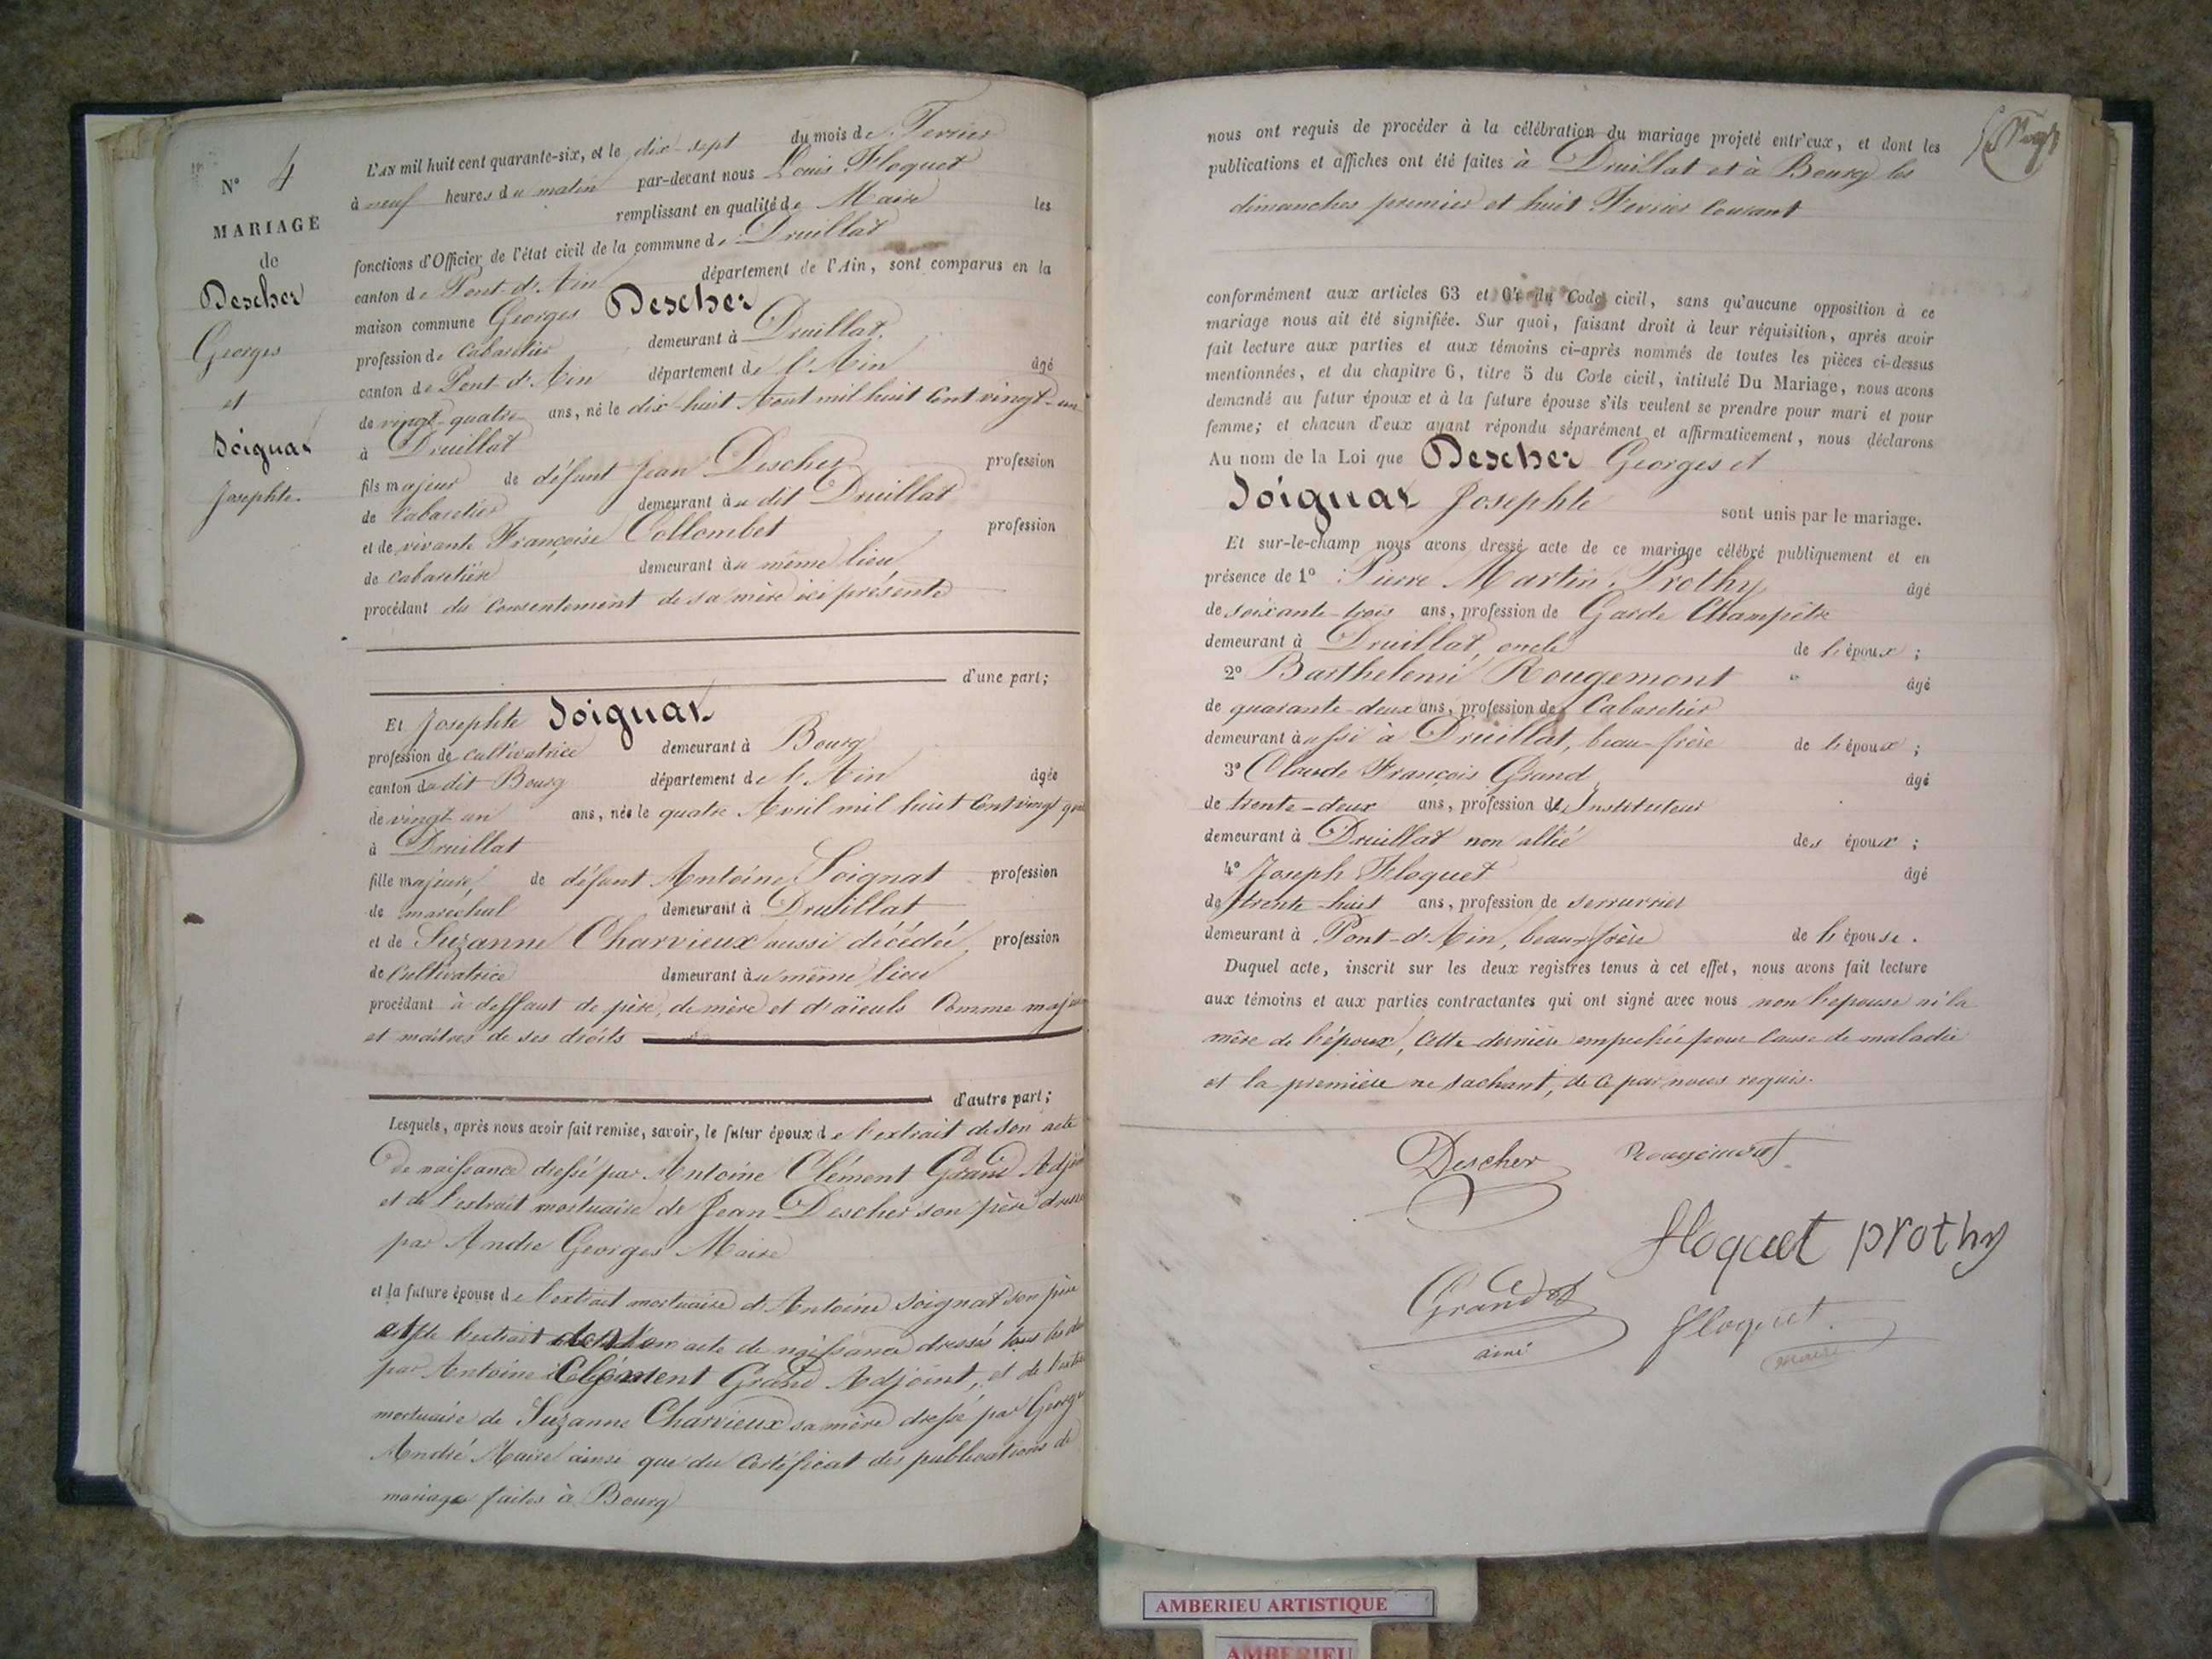 N° 4
MARIAGE
de
Descher
Georges
et
Soignat
Josephte.
L'AN mil huit cent quarante-six, et le dix-sept du mois de Fevrier
à neuf heures du matin par-devant nous Louis Floquet
remplissant en qualité de Maire les
fonctions d'Officier de l'état civil de la commune de Druillat
canton de Pont-d'Ain département de l'Ain, sont comparus en la
maison commune Georges Descher
profession de Cabaretier demeurant à Druillat,
canton de Pont-d'Ain département de l'Ain âgé
de vingt-quatre ans, né le dix-huit Aout mil huit Cent vingt-un
à Druillat
fils majeur de défunt Jean Descher profession
de Cabaretier demeurant au dit Druillat
et de vivante Françoise Collombet profession
de Cabaretière demeurant au même lieu
procédant du Consentement de sa mère ici présente
d'une part;
Et Josephte Soignat
profession de Cultivatrice demeurant à Bourg
canton du dit Bourg département de l'Ain âgée
de vingt un ans, née le quatre Avril mil huit Cent vingt
à Druillat
fille majeure, de défunt Antoine Soignat profession
de maréchal demeurant à Druillat
et de Suzanne Charvieux aussi décédée, profession
de Cultivatrice demeurant au même lieu
procédant à deffaut de père, de mère et d'aïeuls Comme
et maitres de ses droits
d'autre part;
Lesquels, après nous avoir fait remise, savoir, le futur époux de l'extrait de son acte
De naissance dressé par Antoine Clément Grand
et de l'extrait mortuaire de Jean Descher son père
par Andre Georges Maire
et la future épouse de l'extrait mortuaire d'Antoine Soignat son père
et de l'extrait de son acte de naissance dressés tous les
par Antoine Clément Grand Adjoint, et de
mortuaire de Suzanne Charvieux sa mère dressé par
André Maire ainsi que du Certificat des publications de
mariage faites à Bourg
nous ont requis de procéder à la célébration du mariage projeté entr'eux, et dont les
publications et affiches ont été faites à Druillat et à Bourg les
dimanches premier et huit Fevrier Courant
conformément aux articles 63 et 64 du Code civil, sans qu'aucune opposition à ce
mariage nous ait été signifiée. Sur quoi, faisant droit à leur réquisition, après avoir
fait lecture aux parties et aux témoins ci-après nommés de toutes les pièces ci-dessus
mentionnées, et du chapitre 6, titre 5 du Code civil, intitulé Du Mariage, nous avons
demandé au futur époux et à la future épouse s'ils veulent se prendre pour mari et pour
femme; et chacun d'eux ayant répondu séparément et affirmativement, nous déclarons
Au nom de la Loi que Descher Georges et
Soignat Josephte sont unis par le mariage.
Et sur-le-champ nous avons dressé acte de ce mariage célébré publiquement et en
présence de 1° Pierre Martin Prothy âgé
de soixante-trois ans, profession de Garde Champêtre
demeurant à Druillat, oncle de l'époux;
2° Barthelemi Rougemont âgé
de quarante-deux ans, profession de Cabaretier
demeurant aussi à Druillat, beau-frère de l'époux;
3° Claude François Grand âgé
de trente-deux ans, profession d'Instituteur
demeurant à Druillat non allié des époux;
4° Joseph Floquet âgé
de trente-huit ans, profession de serrurrier
demeurant à Pont-d'Ain, beau-frère de l'épouse.
Duquel acte, inscrit sur les deux registres tenus à cet effet, nous avons fait lecture
aux témoins et aux parties contractantes qui ont signé avec nous non l'epouse ni la
mère de l'époux, Cette dernière empechée pour Cause de maladie
et la première ne sachant, de ce par nous requis.
Descher Rougemont
floquet prothy
Grand
ainé
floquet
maire
AMBERIEU ARTISTIQUE
AMBERIEU